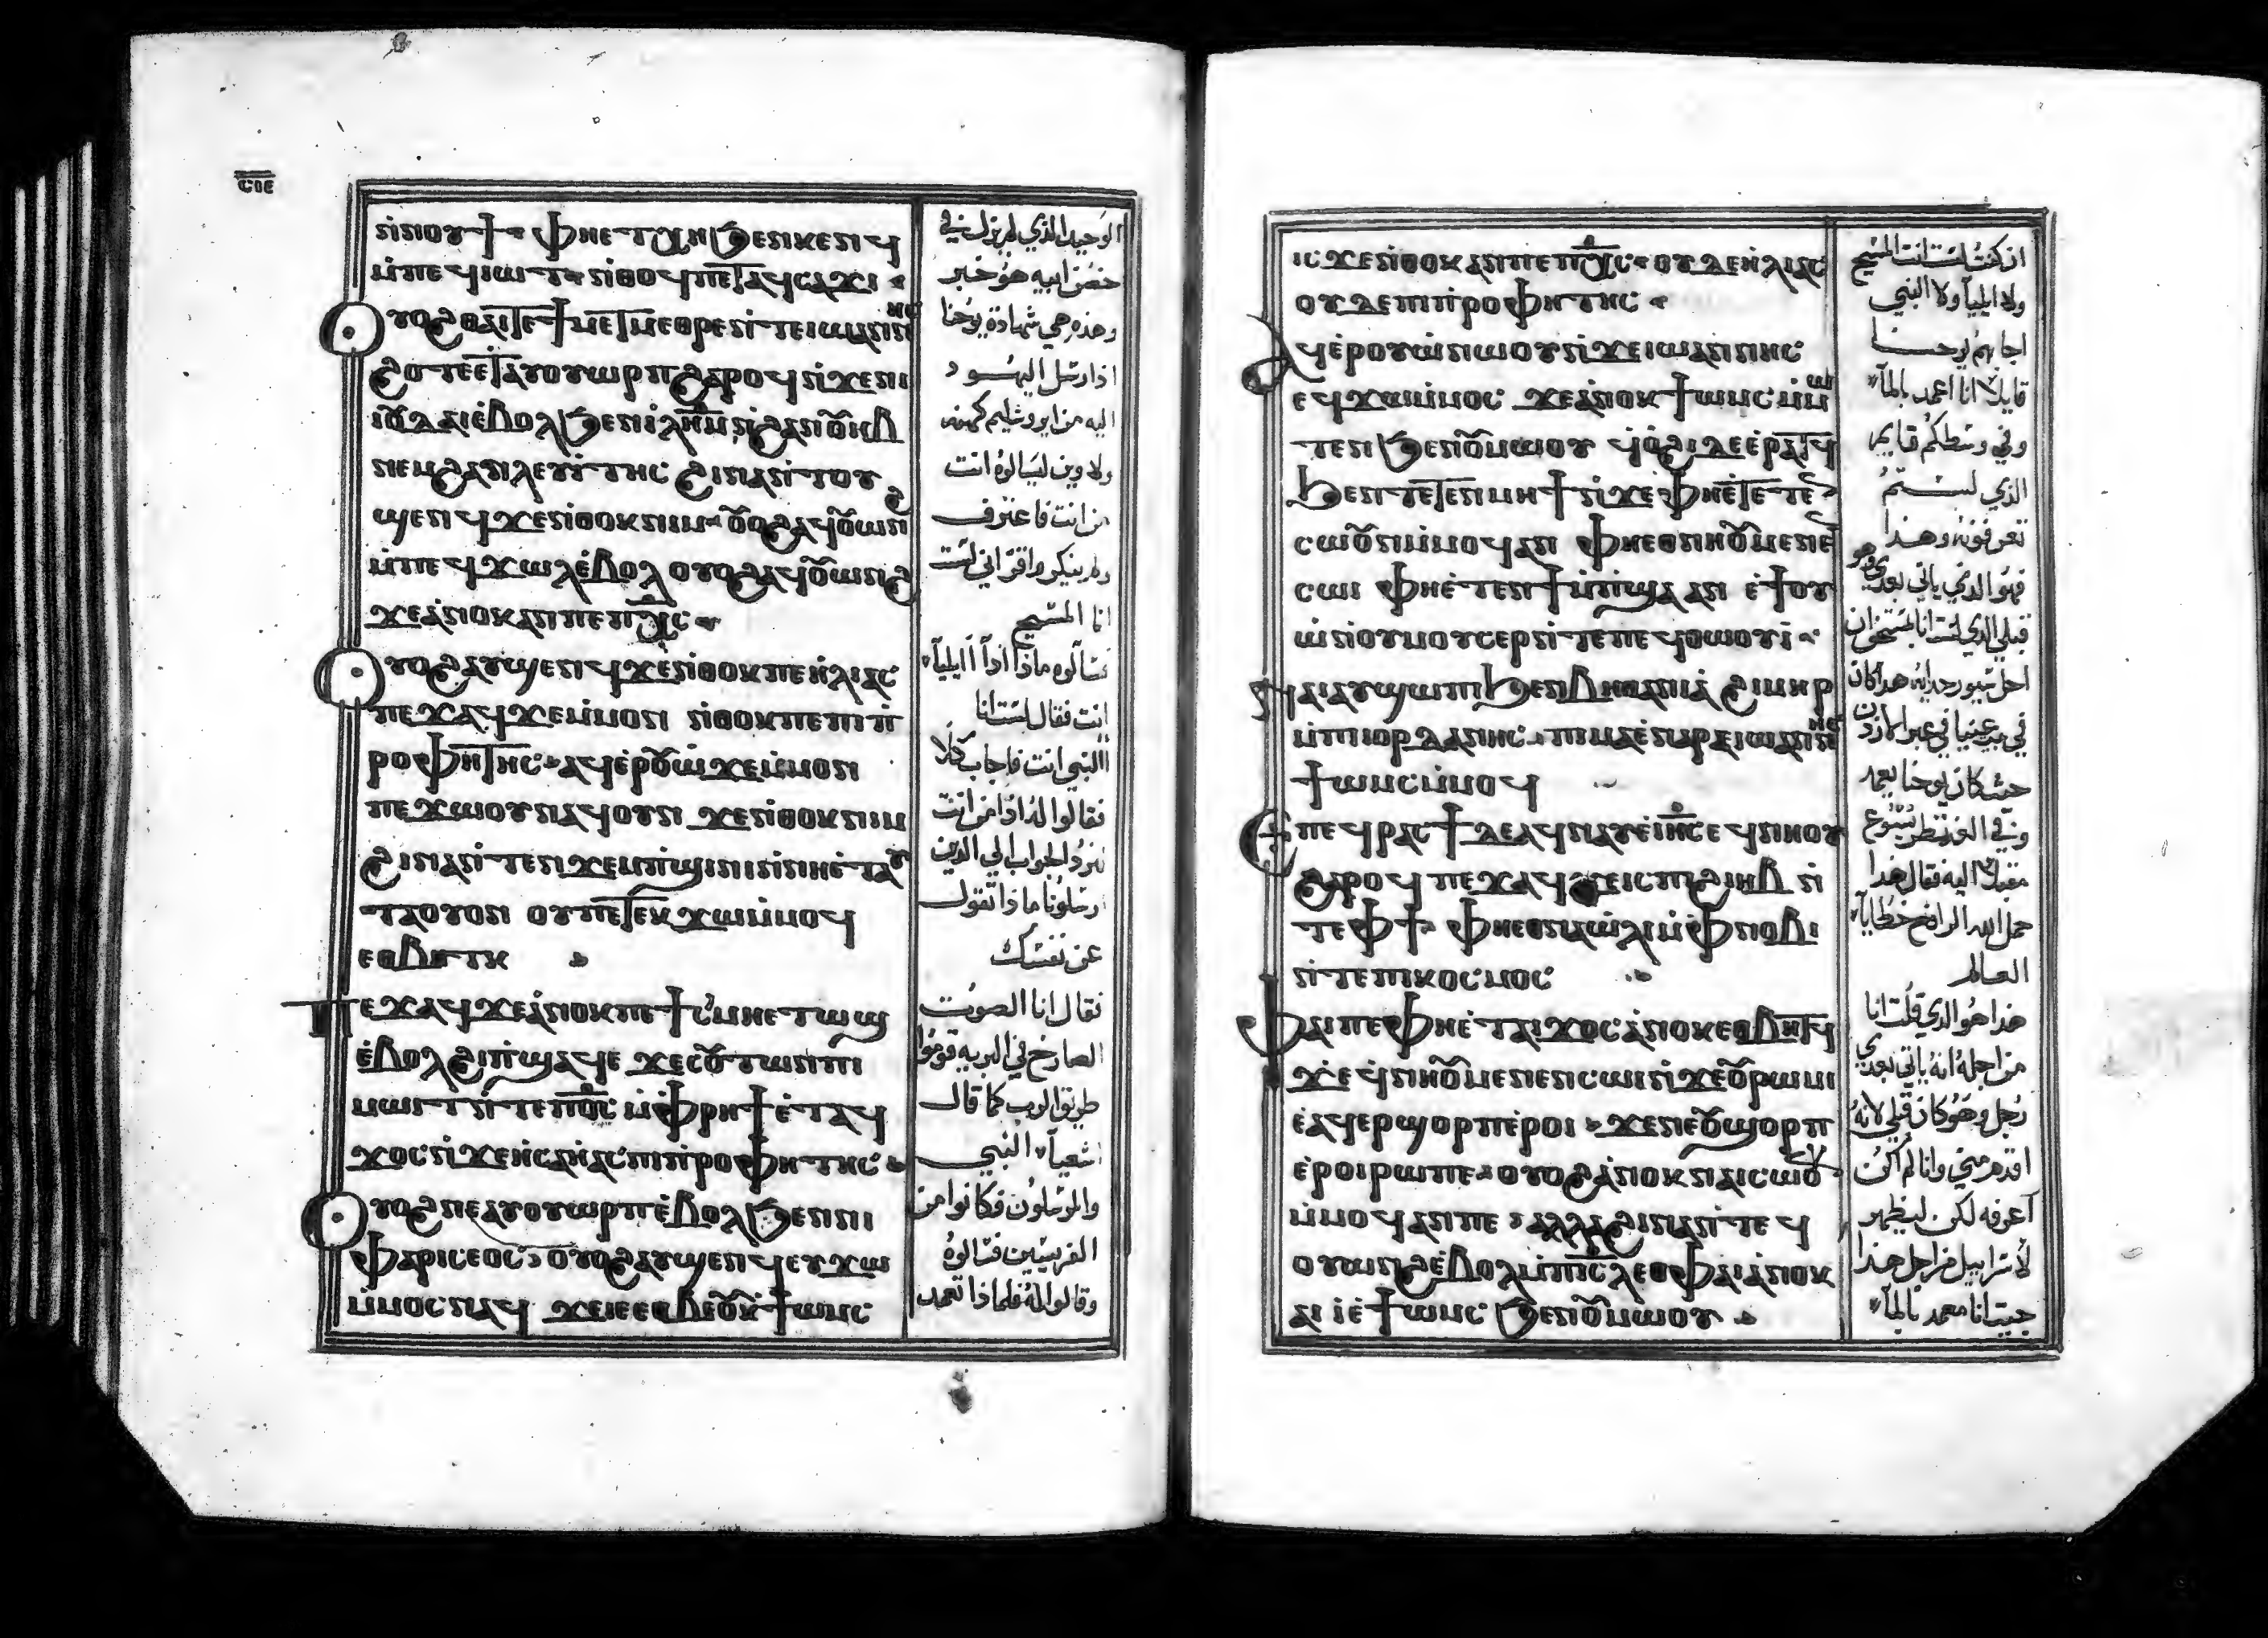 ⲥⲓⲉ
ⲛ̇ⲛⲟⲩϯ ⲫⲏⲉⲧⲭⲏϧⲉⲛⲕⲉⲛϥ
ⲙ̇ⲡⲉϥⲓⲱⲧ ⲛ̇ⲑⲟϥⲡⲉⲧⲁϥⲥⲁϫⲓ
ⲟⲩⲟϩ ⲑⲁⲓⲧⲉϯⲙⲉⲧⲙⲉⲑⲣⲉⲛ̇ⲧⲉⲓⲱⲁⲛⲛⲏⲥ
ϩⲟⲧⲉⲉⲧⲁⲩⲟⲩⲱⲣⲡϩⲁⲣⲟϥⲛ̇ϫⲉⲛⲓ
ⲓⲟⲩⲇⲁⲓⲉ̇ⲃⲟⲗϧⲉⲛⲓ̇ⲗ̅ⲏ̅ⲙ̅ ⲛ̇ϩⲁⲛⲟⲩⲏⲃ
ⲛⲉⲙϩⲁⲛⲗⲉⲩⲓ̇ⲧⲏⲥ ϩⲓⲛⲁⲛ̇ⲧⲟⲩ
ϣⲉⲛϥ ϫⲉⲛ̇ⲑⲟⲕⲛⲓⲙ ⲟⲩⲟϩⲁϥⲟⲩⲱⲛϩ
ⲙ̇ⲡⲉϥϫⲱⲗⲉ̇ⲃⲟⲗ ⲟⲩⲟϩⲁϥⲟⲩⲱⲛϩ
ϫⲉⲁ̇ⲛⲟⲕⲁⲛⲡⲉⲡⲭ̅ⲥ̅
ⲟⲩⲟϩⲁⲩϣⲉⲛϥ ϫⲉⲛ̇ⲑⲟⲕⲡⲉⲏ̇ⲗⲓⲁⲥ
ⲡⲉϫⲁϥϫⲉⲙ̇ⲙⲟⲛ ⲛ̇ⲑⲟⲕⲡⲉⲡⲓⲡ̇
ⲣⲟⲫⲏⲧⲏⲥ ⲁϥⲉ̇ⲣⲟⲩⲱ̇ϫⲉⲙ̇ⲙⲟⲛ
ⲡⲉϫⲱⲟⲩⲛⲁϥⲟⲩⲛ ϫⲉⲛ̇ⲑⲟⲕⲛⲓⲙ
ϩⲓⲛⲁⲛ̇ⲧⲉⲛϫⲉⲙⲡ̇ϣⲓⲛⲓⲛ̇ⲛⲏⲉ̇ⲧⲁⲩ
ⲧⲁⲟⲩⲟⲛ ⲟⲩⲡⲉⲧⲉⲕϫⲱⲙ̇ⲙⲟϥ
ⲉⲑⲃⲏⲧⲕ
ⲡⲉϫⲁϥϫⲉⲁ̇ⲛⲟⲕⲡⲉϯⲥ̇ⲙⲏⲉⲧⲱϣ
ⲉ̇ⲃⲟⲗϩⲓⲡ̇ϣⲁϥⲉ ϫⲉⲥⲟⲩⲧⲱⲛⲡⲓ
ⲙⲱⲓⲧⲛ̇ⲧⲉⲡⲟ̅ⲥ̅ ⲙ̇ⲫⲣⲏϯⲉ̇ⲧⲁϥ
ϫⲟⲥⲛ̇ϫⲉⲏ̇ⲥⲁⲏ̇ⲁⲥⲡⲓⲡ̇ⲣⲟⲫⲏⲧⲏⲥ
ⲟⲩⲟϩⲛⲉⲁⲩⲟⲩⲱⲣⲡⲉ̇ⲃⲟⲗϧⲉⲛⲛⲓ
ⲫⲁⲣⲓⲥⲉⲟⲥ ⲟⲩⲟϩⲁⲩϣⲉⲛϥⲉⲩϫⲱ
ⲙ̇ⲙⲟⲥⲛⲁϥ ϫⲉⲓⲉⲉⲑⲃⲉⲟⲩⲕ̇ϯⲱⲙⲥ
الوحيد الذي لم يزل في
حضن ابيه هو خبر
وهذه هي شهادة يوحنا
اذ ارسل اليهود
اليه من ايروشليم كهنه
ولاويين ليسالوه انت
من انت فاعترف
ولم ينكر واقر اني لست
انا المسيح
فسالوه ماذا اذاً أايليآ
انت فقال لست انا
االنبي انت فاجاب كلا
فقالوا له اذا من انت
لنرد الجواب الي الذين
ارسلونا ماذا تقول
عن نفسك
فقال انا الصوت
الصارخ في البريه قوموا
طريق الرب كما قال
اشعيآ النبي
والمرسلون فكانوا من
الفريسيين فسالوه
وقالوا له فلماذا تعمد
ⲓⲥϫⲉⲛ̇ⲑⲟⲕⲁⲛⲡⲉⲡⲭ̅ⲥ̅ ⲟⲩⲇⲉⲏ̇ⲗⲓⲁⲥ
ⲟⲩⲇⲉⲡⲓⲡ̇ⲣⲟⲫⲏⲧⲏⲥ
ⲁϥⲉ̇ⲣⲟⲩⲱ̇ⲛⲱⲟⲩⲛ̇ϫⲉⲓⲱⲁⲛⲛⲏⲥ
ⲉϥϫⲱⲙ̇ⲙⲟⲥ ϫⲉⲁ̇ⲛⲟⲕϯⲱⲙⲥⲙ̇ⲙⲱ
ⲧⲉⲛϧⲉⲛⲟⲩⲙⲱⲟⲩ ϥ̇ⲟ̇ϩⲓⲇⲉⲉ̇ⲣⲁⲧϥ
ϧⲉⲛⲧⲉⲧⲉⲛⲙⲏϯⲛ̇ϫⲉⲫⲏⲉ̇ⲧⲉⲧⲉ
ⲥⲱⲟⲩⲛⲙ̇ⲙⲟϥⲁⲛ ⲫⲏⲉⲑⲛⲏⲟⲩⲙⲉⲛⲉ
ⲥⲱⲓ ⲫⲏⲉ̇ⲧⲉⲛϯⲙ̇ⲡ̇ϣⲁ ⲁⲛ ⲉ̇ϯⲟⲩ
ⲱ̇ⲛ̇ⲟⲩⲙⲟⲩⲥⲉⲣⲛ̇ⲧⲉⲡⲉϥⲑⲱⲟⲩⲓ̇
ⲛⲁⲓⲁⲩϣⲱⲡⲓϧⲉⲛⲃⲏⲑⲁⲛⲓⲁ̇ ϩⲓⲙⲏⲣ
ⲙ̇ⲡⲓⲓⲟⲣⲇⲁⲛⲏⲥ ⲡⲓⲙⲁⲉ̇ⲛⲁⲣⲉⲓⲱⲁⲛⲛⲏⲥ
ϯⲱⲙⲥⲙ̇ⲙⲟϥ
ⲉⲡⲉϥⲣⲁⲥϯⲇⲉⲁϥⲛⲁⲩⲉ̇ⲓⲏ̅ⲥ̅ⲉϥⲛⲏⲟⲩ
ϩⲁⲣⲟϥ ⲡⲉϫⲁϥϫⲉⲓⲥⲡⲓϩⲓⲏⲃ ⲛ̇
ⲧⲉⲫϯ ⲫⲏⲉⲑⲛⲁⲱ̇ⲗⲓⲙ̇ⲫⲛⲟⲃⲓ
ⲛ̇ⲧⲉⲡⲓⲕⲟⲥⲙⲟⲥ
ⲫⲁⲓⲡⲉⲫⲏⲉ̇ⲧⲁⲓϫⲟⲥⲁ̇ⲛⲟⲕⲉⲑⲃⲏⲧϥ
ϫⲉϥ̇ⲛⲏⲟⲩⲙⲉⲛⲉⲛⲥⲱⲓⲛ̇ϫⲉⲟⲩⲣⲱⲙⲓ
ⲉ̇ⲁϥⲉⲣϣⲟⲣⲡⲉ̇ⲣⲟⲓ ϫⲉⲛⲉⲟⲩϣⲟⲣⲡ
ⲉ̇ⲣⲟⲓⲣⲱⲡⲉ ⲟⲩⲟϩⲁ̇ⲛⲟⲕⲛⲁⲓⲥⲱⲟⲩ
ⲙ̇ⲙⲟϥⲁⲛⲡⲉ ⲁⲗⲗⲁϩⲓⲛⲁⲛ̇ⲧⲉϥ
ⲟⲩⲱⲛϩⲉ̇ⲃⲟⲗⲙ̇ⲡⲓⲥ̅ⲗ̅ ⲉⲑⲫⲁⲓⲁ̇ⲛⲟⲕ
ⲁⲓⲓ̇ⲉ̇ϯⲱⲙⲥ ϧⲉⲛⲟⲩⲙⲱⲟⲩ
ان كنت لست انت المسيح
ولا ايليآ ولا النبي
اجابهم يوحنا
قايلاً انا اعمد بالمآ
وفي وسطكم قايم
الذي لستم
تعرفونه وهذا
فهو الذي ياتي بعدي وهو
قبلي الذي لست انا بمستحق ان
احل سيور حذايه هذا كان
في بيت عنيا في عبر الاردن
حيث كان يوحنا يعمد
وفي الغد نظر يسوع
مقبلاً اليه فقال هذا
حمل الله الرافع خطايآ
العالم
هذا هو الذي قلت انا
من اجله انه ياتي بعدي
رجل وهو كان قبلي لانه
اقدم مني وانا لم اكن
أعرفه لكن ليظهر
لأسراييل من اجل هذا
جيت انا معمد بالمآ